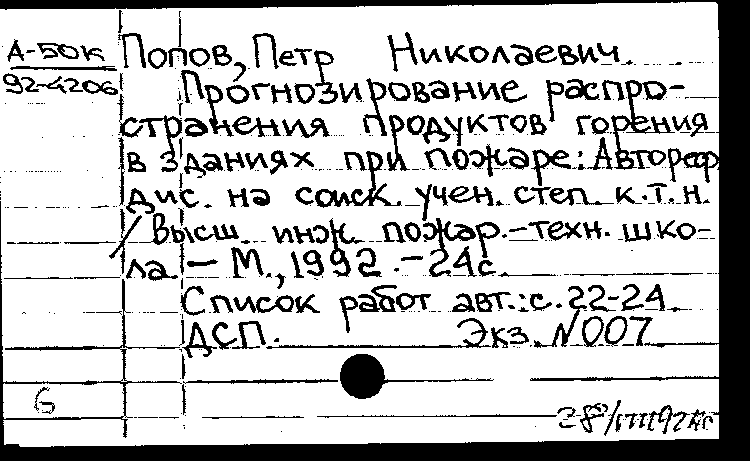 А-50к Попов, Петр Николаевич.
92-4206 Прогнозирование распро-
странения продуктов горения
в зданиях при пожаре: Автореф
дис. на соиск. учен. степ. к.т.н.
/ Высш. инж. пожар.-техн. шко-
ла. – М., 1992. – 24с.
Список работ авт.: с. 22-24.
ДСП. Экз. N007